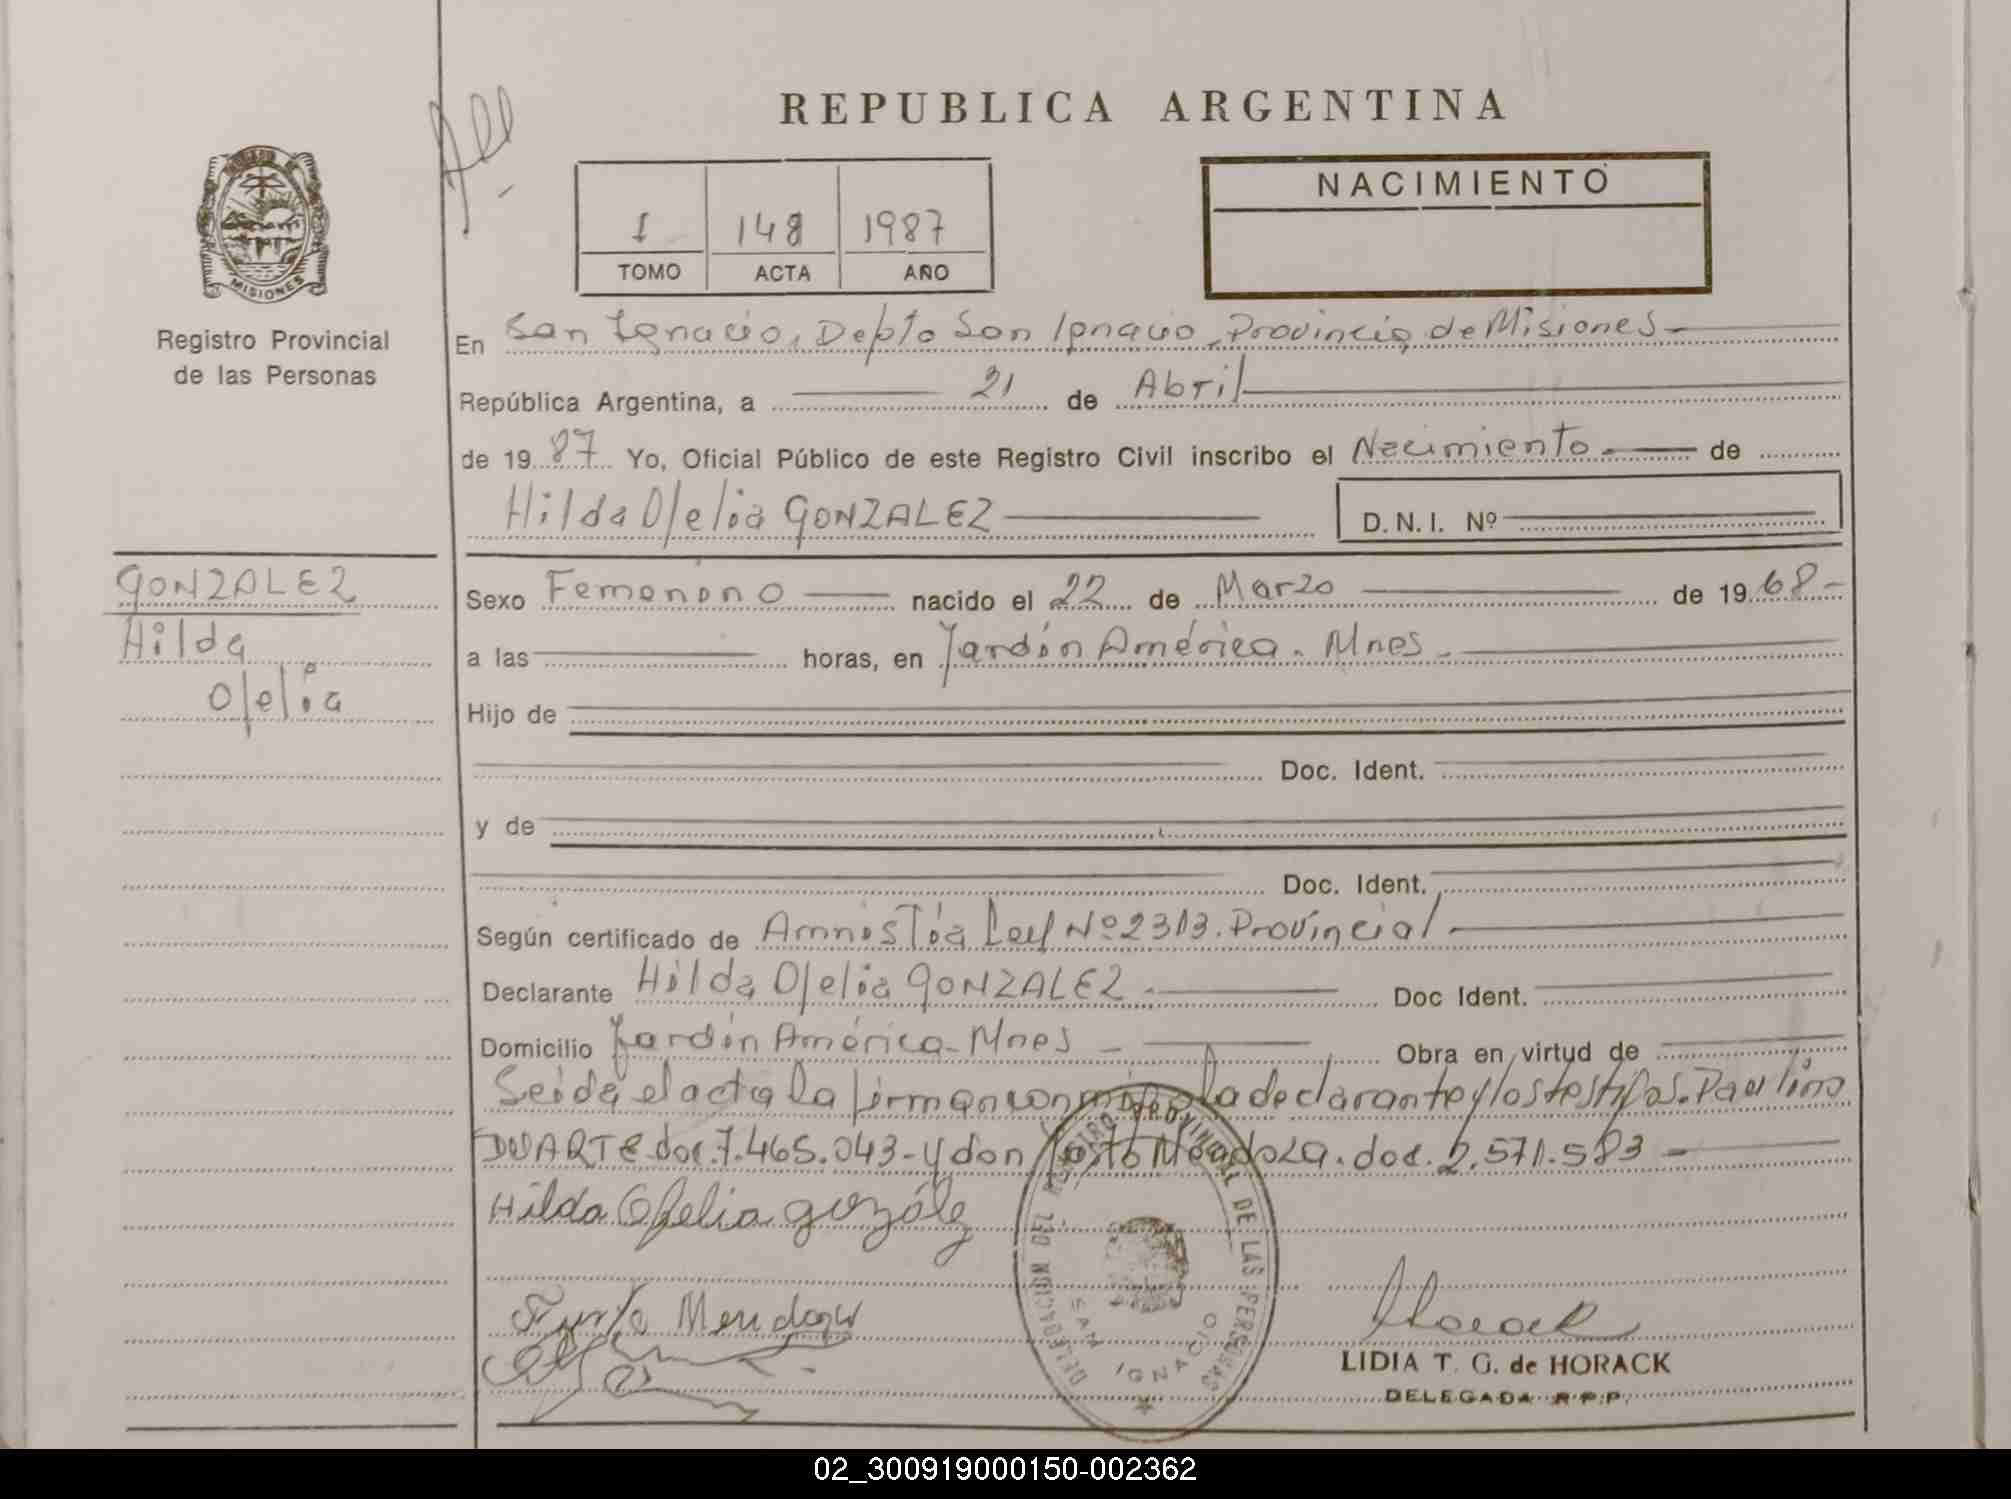 REPUBLICA ARGENTINA
MISIONES
Registro Provincial
de las Personas
1 148 1987
TOMO ACTA AÑO
NACIMIENTO
En San Ignacio, Depto San Ignacio, Provincia de Misiones
República Argentina, a 21 de Abril
de 1987 Yo, Oficial Público de este Registro Civil inscribo el Nacimiento de
Hilda Ofelia GONZALEZ D.N.I. Nº
GONZALEZ
Hilda
Ofelia
Sexo Femenino nacido el 22 de Marzo de 1968
a las horas, en Jardín América. Mnes
Hijo de
Doc. Ident.
y de
Doc. Ident.
Según certificado de Amnistía Ley Nº 2313. Provincial
Declarante Hilda Ofelia GONZALEZ Doc Ident.
Domicilio Jardín América - Mnes Obra en virtud de
Leída el acta la firman conmigo la declarante y los testigos. Paulino
DUARTE doc. 7.465.043 - y don Mendoza. doc. 2.571.583
Hilda Ofelia gonzález
Mendoza
DELEGACION DEL REGISTRO PROVINCIAL DE LAS PERSONAS
SAN IGNACIO
LIDIA T. G. de HORACK
DELEGADA R.P.P.
02_300919000150-002362